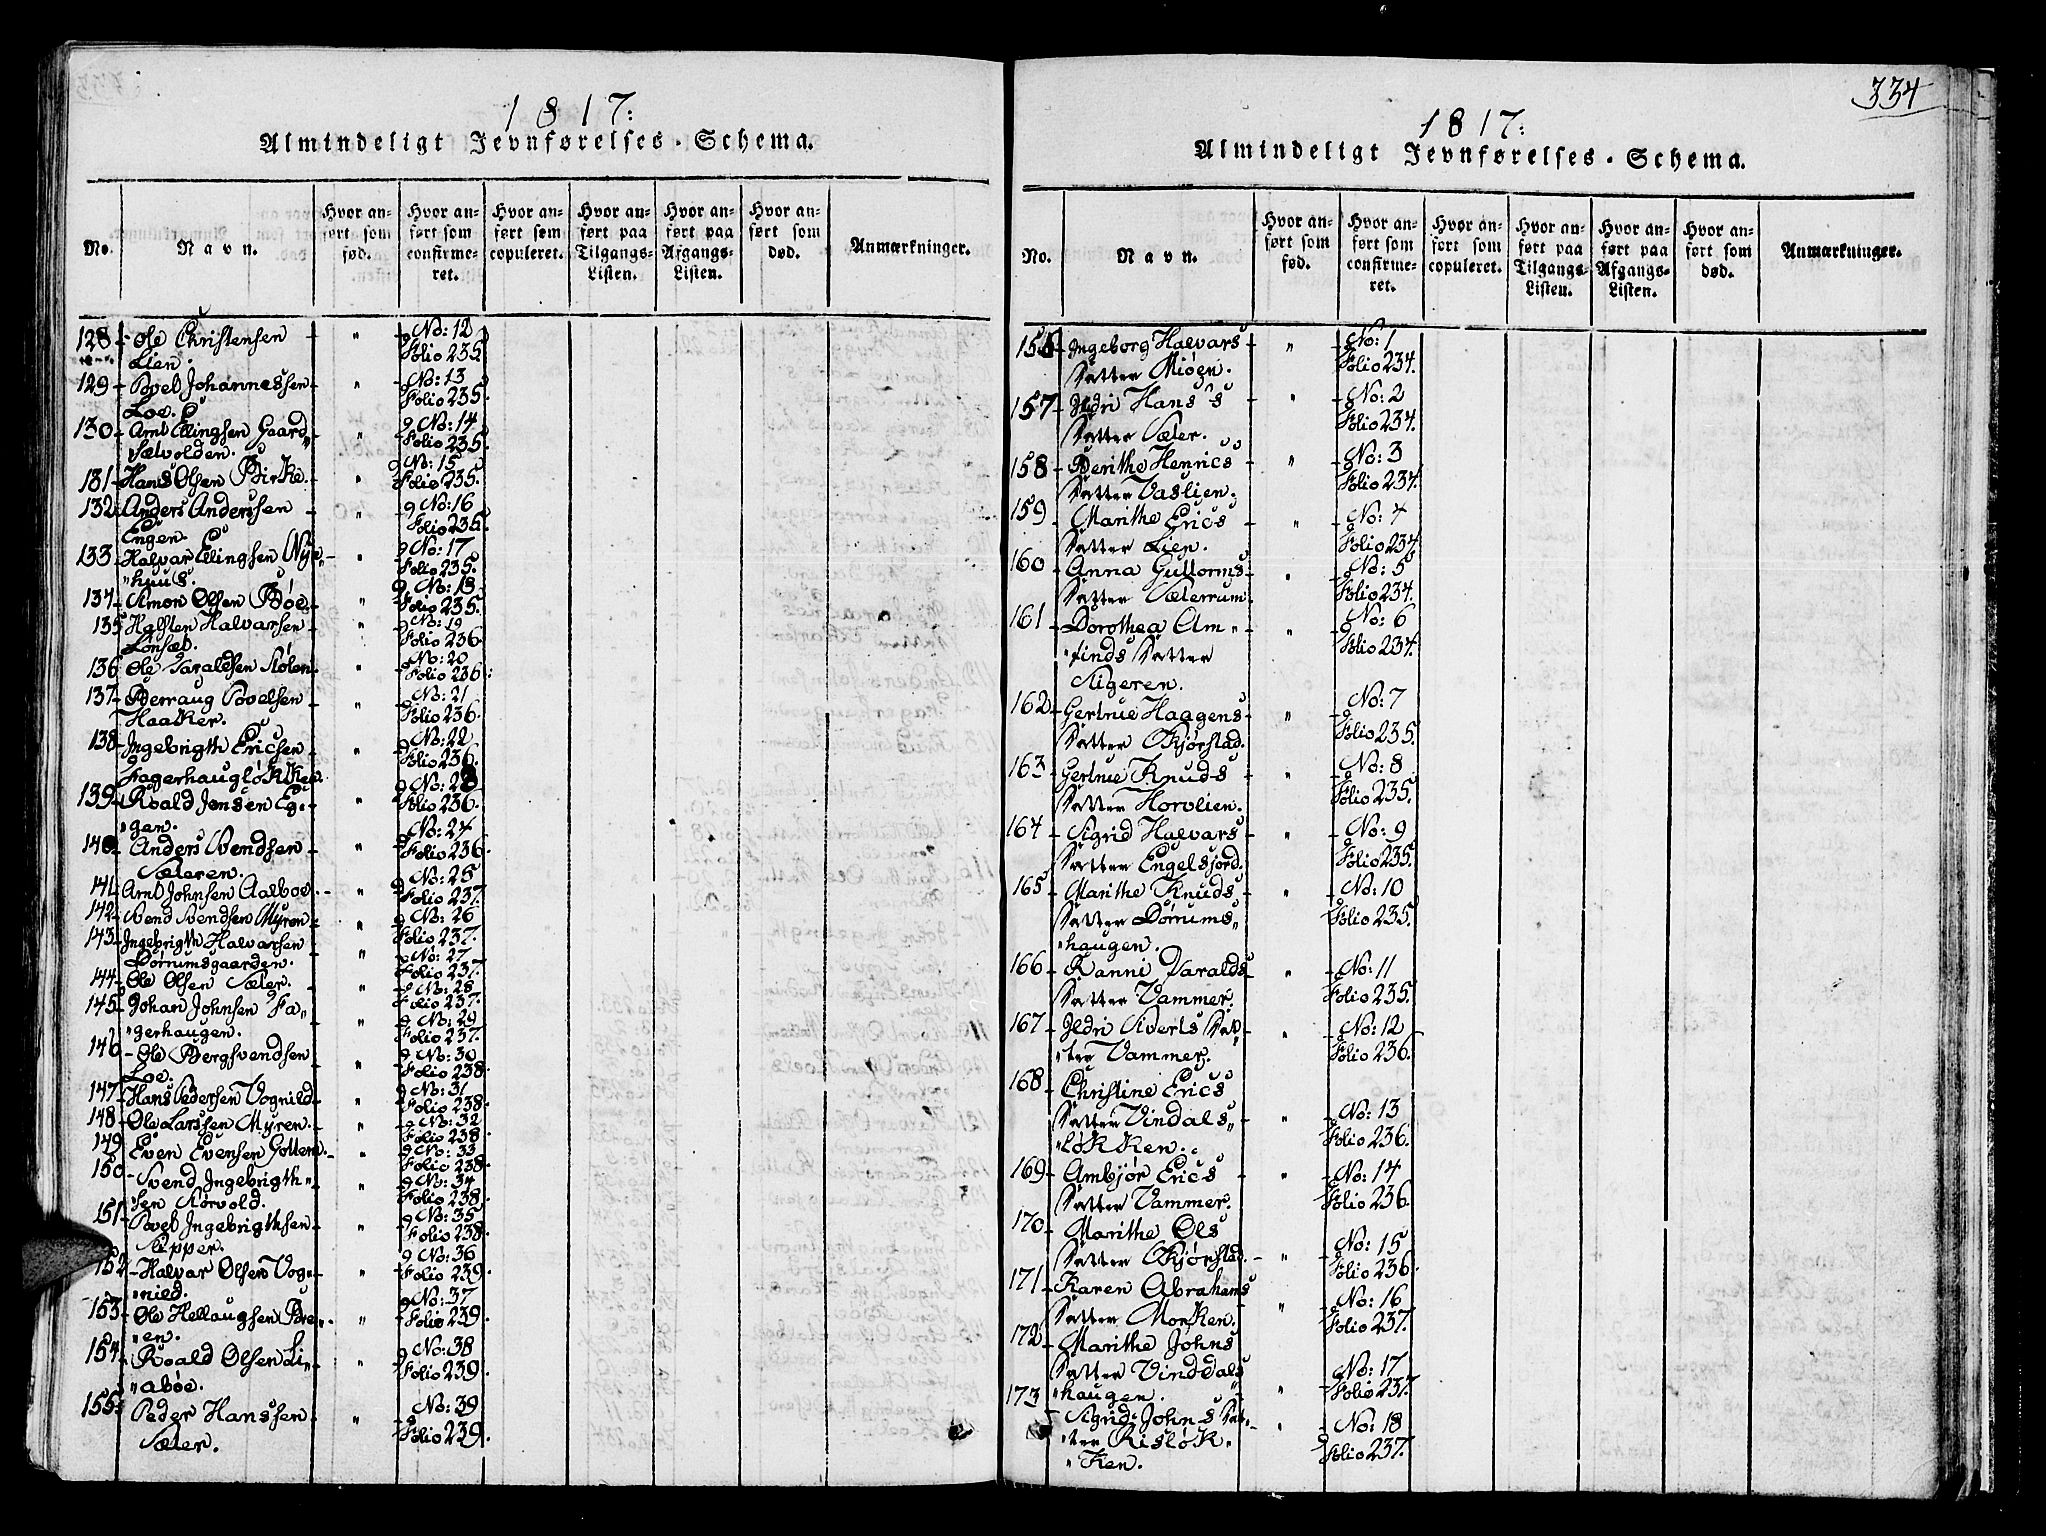 1817:
Almindeligt Jevnførelses-Schema.
No. Navn. Hvor anført som fød. Hvor anført som confirmeret. Hvor anført som copuleret. Hvor anført paa Tilgangs-Listen. Hvor anført paa Afgangs-Listen. Hvor anført som død. Anmærkninger.
128 Ole Christensen " No: 12
Lien. Folio 235
129 Povel Johannessen " No: 13
Loe. Folio 235.
130 Arnt Ellingsen Gaard " No: 14
sætvolden. Folio 235
131 Hans Olsen Birke. " No: 15
Folio 235.
132 Anders Anderssen " No: 16
Engen. Folio 235.
133 Halvar Ellingsen Nye " No: 17
"huus. Folio 235.
134 Simon Olsen Bøe. " No: 18
Folio 235.
135 Halsten Halvarsen " No: 19
Lønset. Folio 236
136 Ole Taraldsen Stølen " No: 20
Folio 236:
137 Berraug Povelsen " No: 21
Haaker. Folio 236.
138 Ingebrigth Ericsen " No: 22
Fagerhaugløkken. Folio 236.
139 Roald Jonsen Eg " No: 23
"gen. Folio 236.
140 Anders Svendsen " No: 24
Sæteren. Folio 236.
141 Arnt Johnsen Aalboe. " No: 25
Folio 237.
142 Svend Svendsen Myren " No: 26
Folio 237.
143 Ingebrigth Halvarsen " No: 27
Dørrumsgaarden. Folio 237.
144 Ole Olsen Sæter. " No: 28
Folio 237.
145 Johan Johnsen Fa " No: 29
"gerhaugen. Folio 237.
146 Ole Bergsvendsen " No: 30
Loe. Folio 238.
147 Hans Pedersen Vognild " No: 31
Folio 238.
148 Ole Larssen Myren. " No: 32
Folio 238.
149 Even Evensen Gottem. " No: 33
Folio 238.
150 Svend Ingebrigth " No: 34
"sen Storvold. Folio 238.
151 Povel Ingebrigthsen " No: 35
Slipper. Folio 238.
152 Halvar Olsen Vog " No: 36
"nild. Folio 239.
153 Ole Hellaugsen Bre " No: 37
"en. Folio 239.
154 Roald Olsen Li " No: 38
"abøe. Folio 239.
155 Peder Hanssen " No: 39
Sæter. Folio 239.
334
1817:
Almindeligt Jevnførelses-Schema.
No. Navn. Hvor anført som fød. Hvor anført som confirmeret. Hvor anført som copuleret. Hvor anført paa Tilgangs-Listen. Hvor anført paa Afgangs-Listen. Hvor anført som død. Anmærkninger.
156 Ingeborg Halvars " No: 1
Datter Miøen. Folio 234.
157 Ildri Hans's " No: 2
Datter Sæter. Folio 234.
158 Berithe Henrics " No: 3
Datter Vaslien. Folio 234.
159 Marithe Erics " No: 4
Datter Lien. Folio 234
160 Anna Guttorms " No: 5
Datter Sæterrum. Folio 234.
161 Dorothea Am " No: 6
"finds Datter Folio 234.
Stigeren.
162 Gertrue Haagens " No: 7
Datter Kjørstad. Folio 235.
163 Gertrue Knuds " No: 8
Datter Horvlien. Folio 235.
164 Sigrid Halvars " No: 9
Datter Engelsjord. Folio 235.
165 Marithe Knuds " No: 10
Datter Dørrums Folio 235.
"haugen.
166 Ranni Taralds " No: 11
Datter Vammer. Folio 235.
167 Ildri Siverts Dat " No: 12
"ter Vammer. Folio 236.
168 Christine Erics
Datter Vindals " No: 13
"løkken. Folio 236.
169 Ambjør Erics " No: 14
Datter Vammer. Folio 236.
170 Marithe Ols No: 15
Datter Kjørstad. " Folio 236.
171 Karen Abrahams No: 16
Datter Morken. " Folio 237.
172 Marithe Johns
Datter Vinddals No: 17
"haugen. " Folio 237.
173 Sigrid Johns Dat " No: 18
"ter Risløk Folio 237.
"ken.